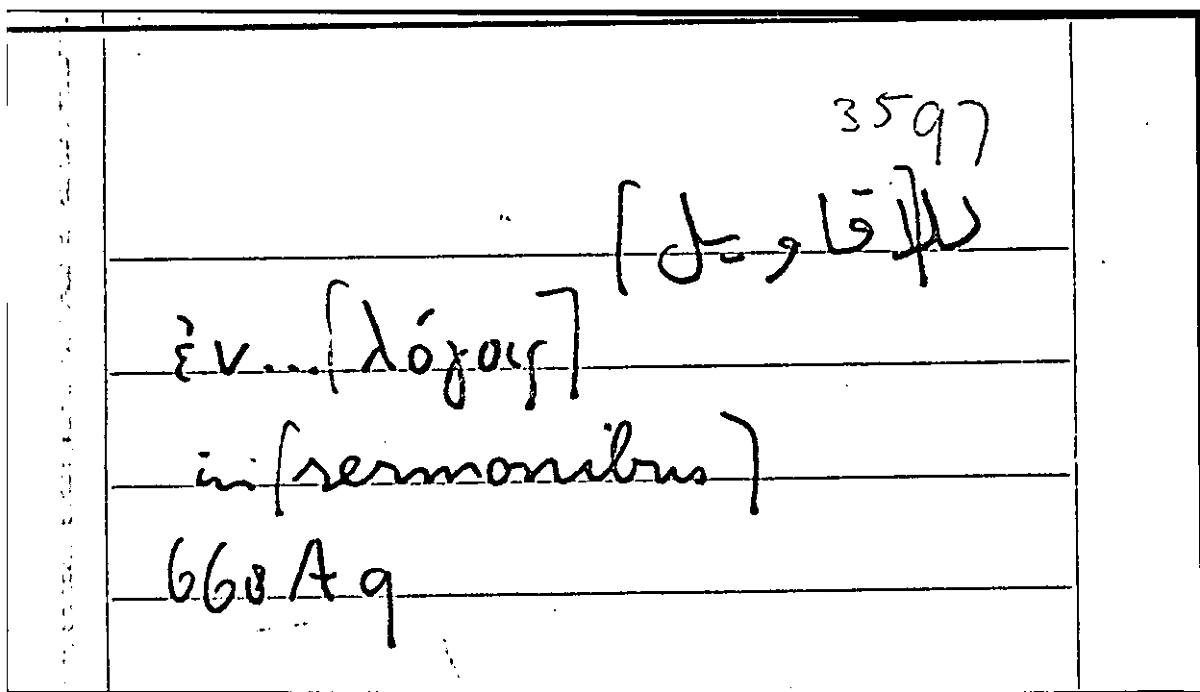 3597
[قاويل]
ἐν...[λόγοις]
in [sermonibus]
668 A 9